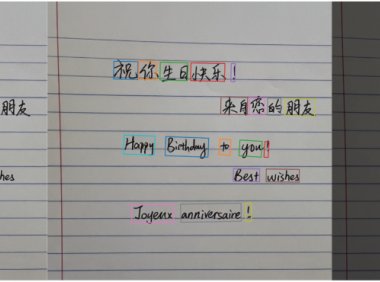 祝你生日快乐!
朋友
来自您的朋友
Happy Birthday to you!
hes
Best wishes
Joyeux anniversaire!